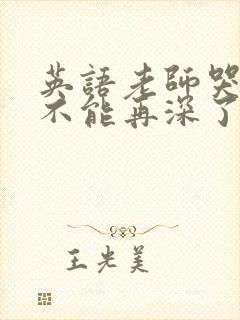 英語老師哭
不能再深了
王光美